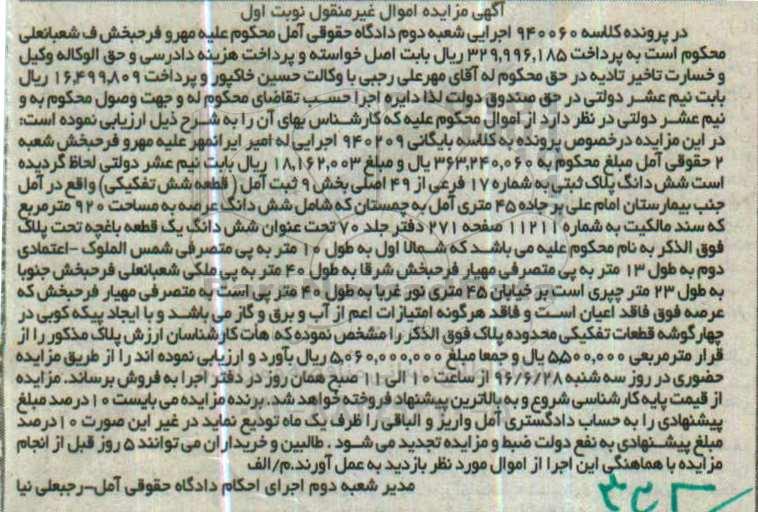 آگهی مزایده اموال غیرمنقول نوبت اول
در پرونده کلاسه ۹۴۰۰۶۰ اجرایی شعبه دوم دادگاه حقوقی آمل محکوم علیه مهرو فرحبخش ف شعبانعلی
محکوم است به پرداخت ۳۲۹,۹۹۶,۱۸۵ ریال بابت اصل خواسته و پرداخت هزینه دادرسی و حق الوکاله وکیل
و خسارت تاخیر تادیه در حق محکوم له آقای مهرعلی رجبی با وکالت حسین خاکپور و پرداخت ۱۶,۴۹۹,۸۰۹ ریال
بابت نیم عشر دولتی در حق صندوق دولت لذا دایره اجرا حسب تقاضای محکوم له و جهت وصول محکوم به و
نیم عشر دولتی در نظر دارد از اموال محکوم علیه که کارشناس بهای آن را به شرح ذیل ارزیابی نموده است:
در این مزایده درخصوص پرونده به کلاسه بایگانی ۹۴۰۲۰۹ اجرایی له امیر ایرانمهر علیه مهرو فرحبخش شعبه
۲ حقوقی آمل مبلغ محکوم به ۳۶۳,۲۴۰,۰۶۰ یال و مبلغ ۱۸,۱۶۲,۰۰۳ ریال بابت نیم عشر دولتی لحاظ گردیده
است شش دانگ پلاک ثبتی به شماره ۱۷ فرعی از ۴۹ اصلی بخش ۹ ثبت آمل (قطعه شش تفکیکی) واقع در آمل
جنب بیمارستان امام علی بر جاده ۴۵ متری آمل به چمستان که شامل شش دانگ عرصه به مساحت ۹۲۰ مترمربع
که سند مالکیت به شماره ۱۱۲۱۱ صفحه ۲۷۱ دفتر جلد ۷۰ تحت عنوان شش دانگ یک قطعه باغچه تحت پلاک
فوق الذکر به نام محکوم علیه می باشد که شمالا اول به طول ۱۰ متر به پی متصرفی شمس الملوک -اعتمادی
دوم به طول ۱۳ متر به پی متصرفی مهیار فرحبخش شرقا به طول ۴۰ متر به پی ملکی شعبانعلی فرحبخش جنوبا
به طول ۲۳ متر چپری است بر خیابان ۴۵ متری نور غربا به طول ۴۰ متر پی است به متصرفی مهیار فرحبخش که
عرصه فوق فاقد اعیان است و فاقد هرگونه امتیازات اعم از آب و برق و گاز می باشد و با ایجاد پیکه کوبی در
چهارگوشه قطعات تفکیکی محدوده پلاک فوق الذکر را مشخص نموده که هات کارشناسان ارزش پلاک مذکور را از
قرار مترمربعی ۵۵۰۰,۰۰۰ یال و جمعا مبلغ ۵,۰۶۰,۰۰۰,۰۰۰ ریال بآورد و ارزیابی نموده اند را از طریق مزایده
حضوری در روز سه شنبه ۹۶/۶/۲۸ از ساعت ۱۰ الی ۱۱ صبح همان روز در دفتر اجرا به فروش برساند. مزایده
از قیمت پایه کارشناسی شروع و به بالاترین پیشنهاد فروخته خواهد شد. برنده مزایده می بایست ۱۰ درصد مبلغ
پیشنهادی را به حساب دادگستری آمل واریز و الباقی را ظرف یک ماه تودیع نماید در غیر این صورت ۱۰ درصد
مبلغ پیشنهادی به نفع دولت ضبط و مزایده تجدید می شود . طالبین و خریداران می توانند ۵ روز قبل از انجام
مزایده با هماهنگی این اجرا از اموال مورد نظر بازدید به عمل آورند.م/الف
مدیر شعبه دوم اجرای احکام دادگاه حقوقی آمل-رجبعلی نیا